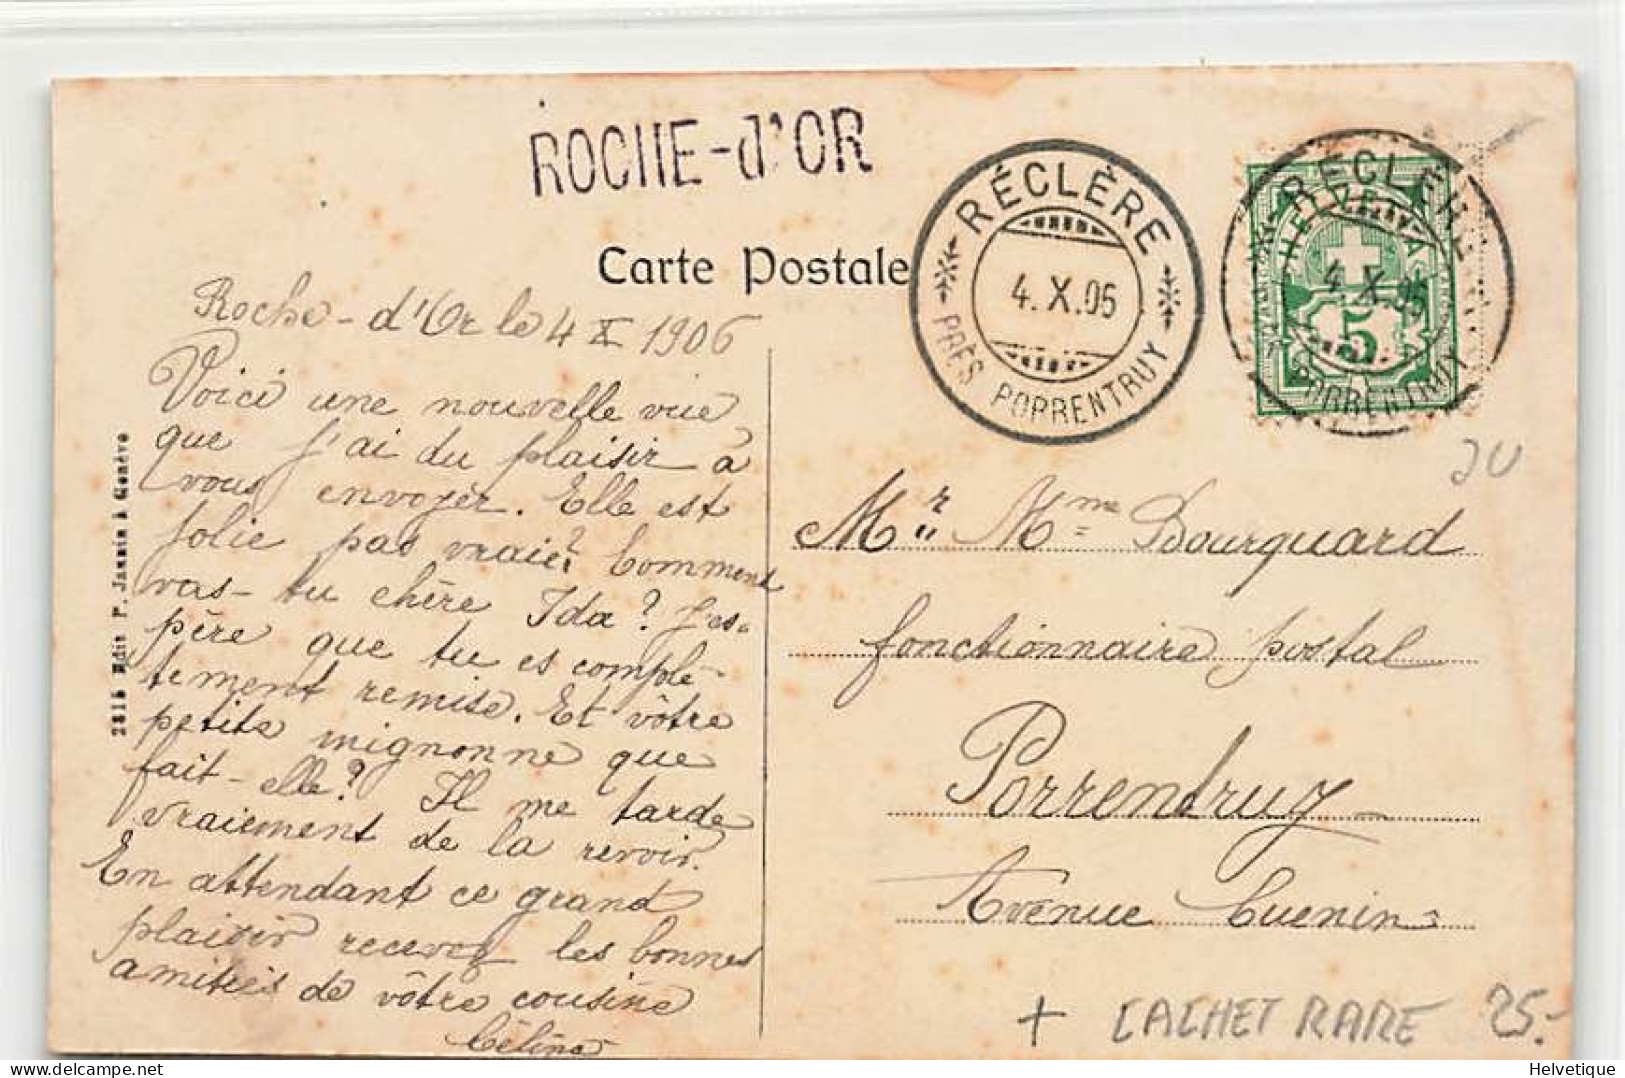 ROCHE-d'OR
RÉCLÈRE
4.X.06
PRÈS PORRENTRUY
RÉCLÈRE
HELVETIA
4.X.06
5
PORRENTRUY
Carte Postale
Roche-d'Or le 4 X 1906
Voici une nouvelle vue
que j'ai du plaisir à
vous envoyer. Elle est
jolie pas vraie? Comment
vas-tu chère Ida? J'es-
père que tu es complè-
tement remise. Et vôtre
petite mignonne que
fait-elle? Il me tarde
vraiement de la revoir.
En attendant ce grand
plaisir recevez les bonnes
amitiés de vôtre cousine
Céline
2815 Edit P. Jaunin à Genève
Mr. Mme Bourquard
fonctionnaire postal
Porrentruy
Avenue Cuenin
+ CACHET RARE 25.-
Helvetique